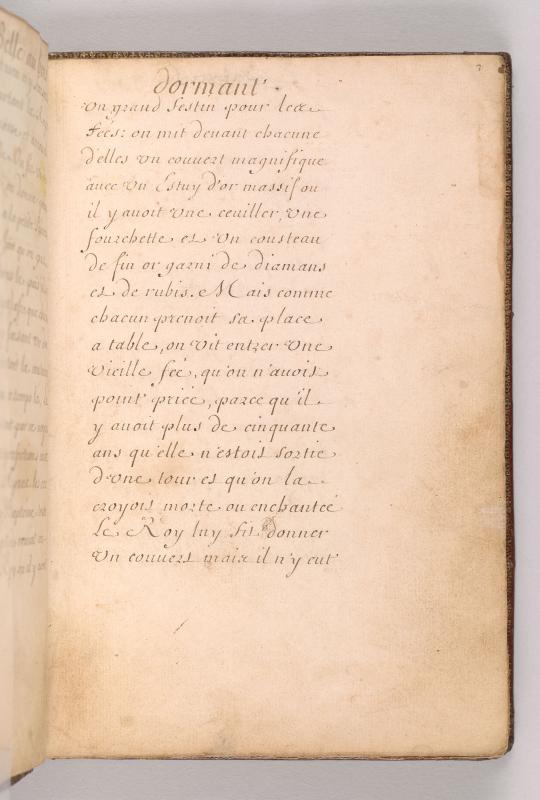 dormant
un grand festin pour les
Fées: on mit devant chacune
d'elles un couvert magnifique
avec un Estuy d'or massif ou
il y avoit une ceuiller, une
fourchette et un cousteau
de fin or garni de diamans
et de rubis. Mais comme
chacun prenoit sa place
a table, on vit entrer une
vieille feé, qu'on n'avoit
point prieé, parce qu'il
y avoit plus de cinquante
ans qu'elle n'estoit sortie
d'une tour et qu'on la
croyoit morte ou enchanteé
Le Roy luy fit donner
un couvert mais il n'y eut